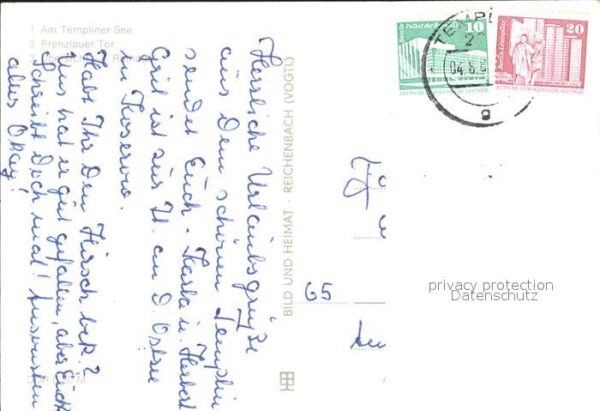 1 Am Templiner See
2 Prenzlauer Tor
Herzliche Urlaubsgrüße
aus dem schönen Templin
sendet Euch. Karla u. Herbert
Gril ist zur Zt. an D. Ostsee
in Koserow.
Habt Ihr Den Hirsch bek.?
uns hat er gut gefallen, aber Euch
Schreibt Doch mal! Ansonsten
alles Okay!
BILD UND HEIMAT · REICHENBACH (VOGTL)
TEMPL
04.6.
Berlin, Palast der Republik
10
DEUTSCHE DEMOKRATISCHE REPUBLIK
Berlin, Leninplatz
20
DEUTSCHE DEMOKRATISCHE REPUBLIK
65
privacy protection
Datenschutz